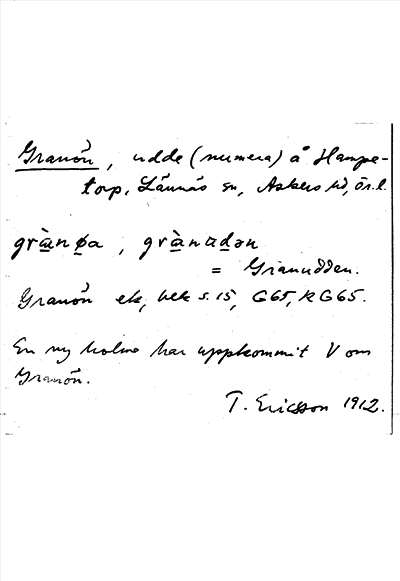 Granön, udde (numera) å Hampe-
torp, Lännäs sn, Askers hd, Ör. l.
grànø̀a, grànudən
= Granudden.
Granön ek, hek s. 15, G65, RG65.
En ny holme har uppkommit V om
Granön.
T. Ericsson 1912.